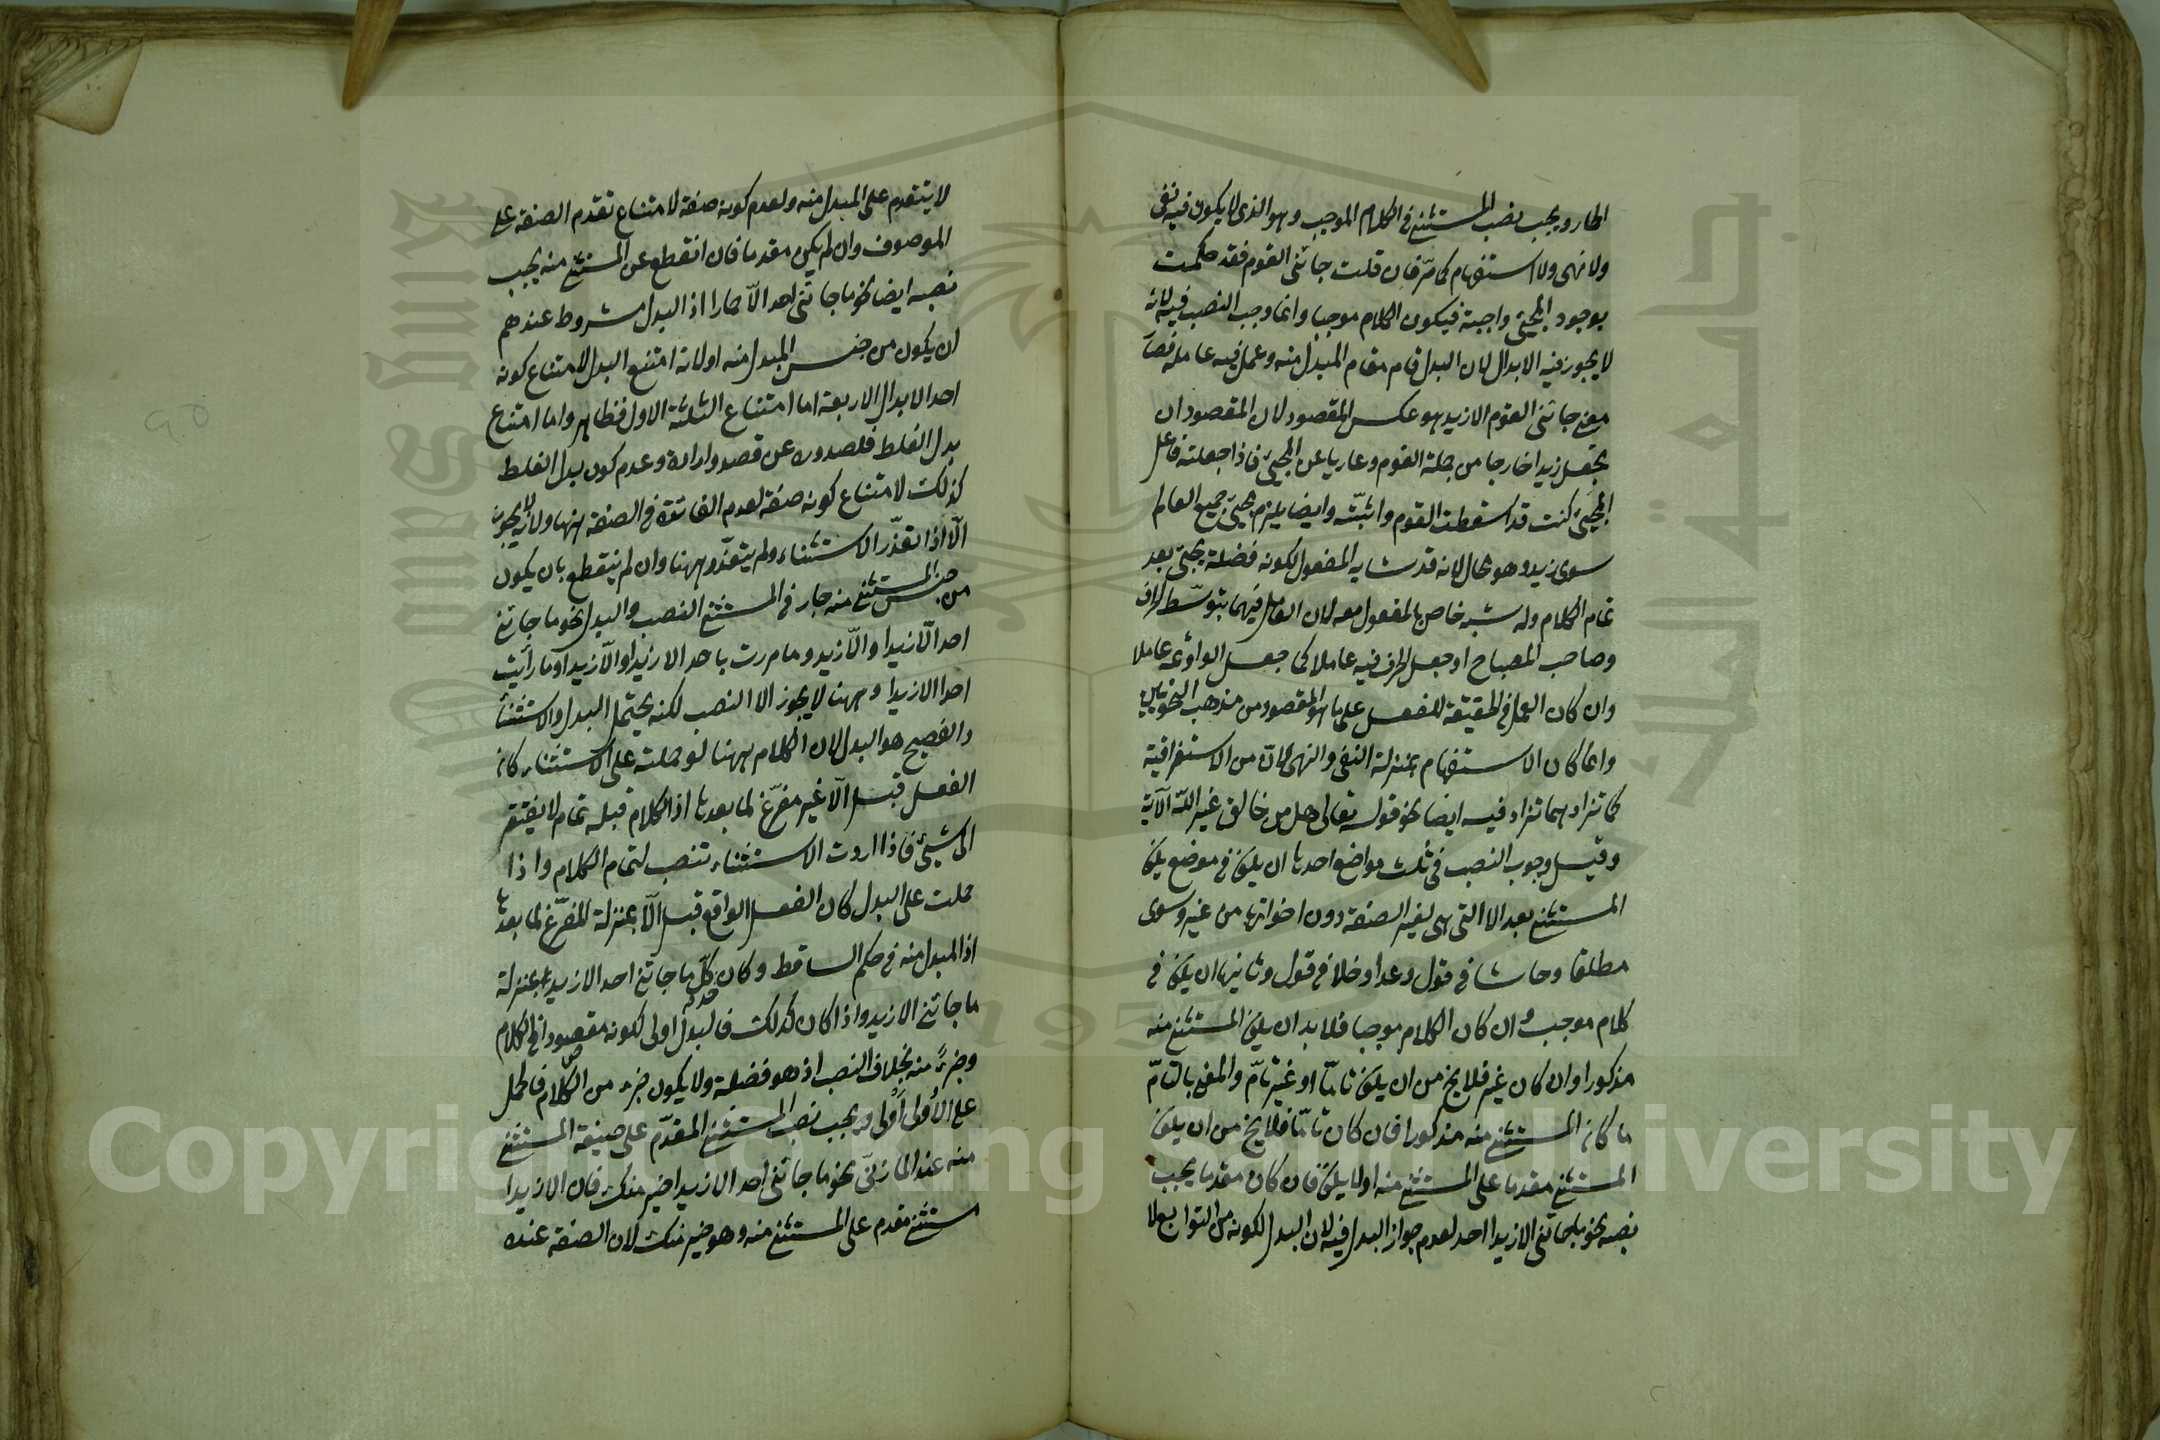 الحار ويجب نصب المستثنى في الكلام الموجب وهو الذى لا يكون فيه نفى
ولا نهى ولا استفهام كما مرّ فان قلت جائنى القوم فقد حكمت
بوجود المجيئ واجبة فيكون الكلام موجبا وانما وجب النصب فيه لانه
لا يجوز فيه الابدال لان البدل قام مقام المبدل منه وعمل فيه عامله فصار
معنى جائنى القوم الا زيد هو عكس المقصود لان المقصود ان
تجعل زيدا خارجا من جملة القوم وعاريا عن المجيئ فاذا جعلته فاعل
المجيئ كنت قد اسقطت القوم واثبتّه وايضا يلزم مجيئ جميع العالم
سوى زيد وهو محال لانه قد شابه المفعول لكونه فضلة يجيئ بعد
تمام الكلام وله شبه خاص بالمفعول معه لان العامل فيهما بتوسّط حرف
وصاحب المصباح اوجعل الحرف فيه عاملا كما جعل الواو عاملا
وان كان العمل في الحقيقة للفعل على ما هو المقصود من مذهب النحويين
وانما كان الاستفهام بمنزلة النفى والنهى لانّ من الاستغراقية
كما تزاد بهما تزاد فيه ايضا نحو قوله تعالى هل من خالق غير اللّه الآية
وقيل وجوب النصب في ثلث مواضع احدها ان يكون في موضع يكون
المستثنى بعد الا التى هى لغير الصفة دون اخواتها من غير وسوى
مطلقا وحاشا في قول وعدا وخلا في قول وثانيها ان يكون في
كلام موجب وان كان الكلام موجبا فلا بد ان يكون المستثنى منه
مذكورا وان كان غير فلا يخ من ان يكون تامّا او غير تامّ والمعنى بالتامّ
ما كان المستثنى منه مذكورا فان كان تامّا فلا يخ من ان يكون
المستثنى مقدما على المستثنى منه اولا يكون فان كان مقدما يجب
نصبه نحو ما جائنى الا زيدا احد لعدم جواز البدل فيه لان البدل لكونه من التوابع لا
لا يتقدم على المبدل منه ولعدم كونه صفة لامتناع تقدم الصفة على
الموصوف وان لم يكن مقدما فان انقطع عن المستثنى منه يجب
نصبه ايضا نحو ما جائنى احد الّا حمارا اذ البدل مشروط عندهم
ان يكون من جنس المبدل منه او لانه امتنع البدل لامتناع كونه
احد الابدال الاربعة اما امتناع الثلثة الاول فظاهر واما امتناع
بدل الغلط فلصدوره عن قصد وارادة وعدم كون بدل الغلط
كذلك لامتناع كونه صفة لعدم الفائدة في الصفة ههنا ولانه لا يجوز
الّا اذا تعذّر الاستثناء ولم يتعذّر ههنا وان لم ينقطع بان يكون
من جنس المستثنى منه جاز في المستثنى النصب والبدل نحو ما جائنى
احد الّا زيدا والّا زيد وما مررت باحد الا زيدا والّا زيد او ما رأيت
احدا الا زيدا وههنا لا يجوز الا النصب لكنه يحتمل البدل والاستثناء
والفصيح هو البدل لان الكلام ههنا لو حملته على الاستثناء كان
الفعل قبل الّا غير مفرّغ لما بعدها اذ الكلام قبله تمام لا يفتقر
الى شيئ فاذا اردت الاستثناء تنصب لتمام الكلام واذا
حملت على البدل كان الفعل الواقع قبل الّا بمنزلة المفرّغ لما بعدها
اذ المبدل منه في حكم الساقط وكان كلّ ما جائنى احد الا زيد بمنزلة
ما جائنى الا زيد واذا كان كذلك فالبدل اولى لكونه مقصودا في الكلام
وجزءً منه بخلاف النصب اذ هو فضلة ولا يكون جزء من الكلام فالحمل
على الأولى أولى ويجب نصب المستثنى المقدّم على صفة المستثنى
منه عند المازنىّ نحو ما جائنى احد الا زيدا خير منك فان الا زيدا
مستثنى مقدم على المستثنى منه وهو خير منك لان الصفة عنده
جامعة الملك سعود
King Saud University
1957
Copyright © King Saud University